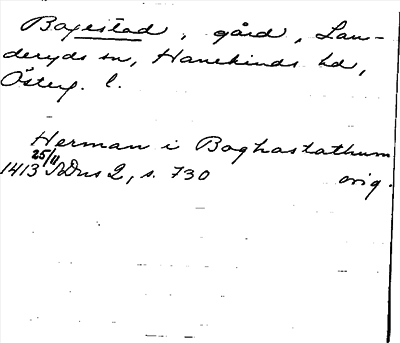 Boxestad, gård, Lan-
deryds sn, Hanekinds hd,
Österg. l.
Herman i Boghastathum
25/11
1413 SDns 2, s. 730 orig.